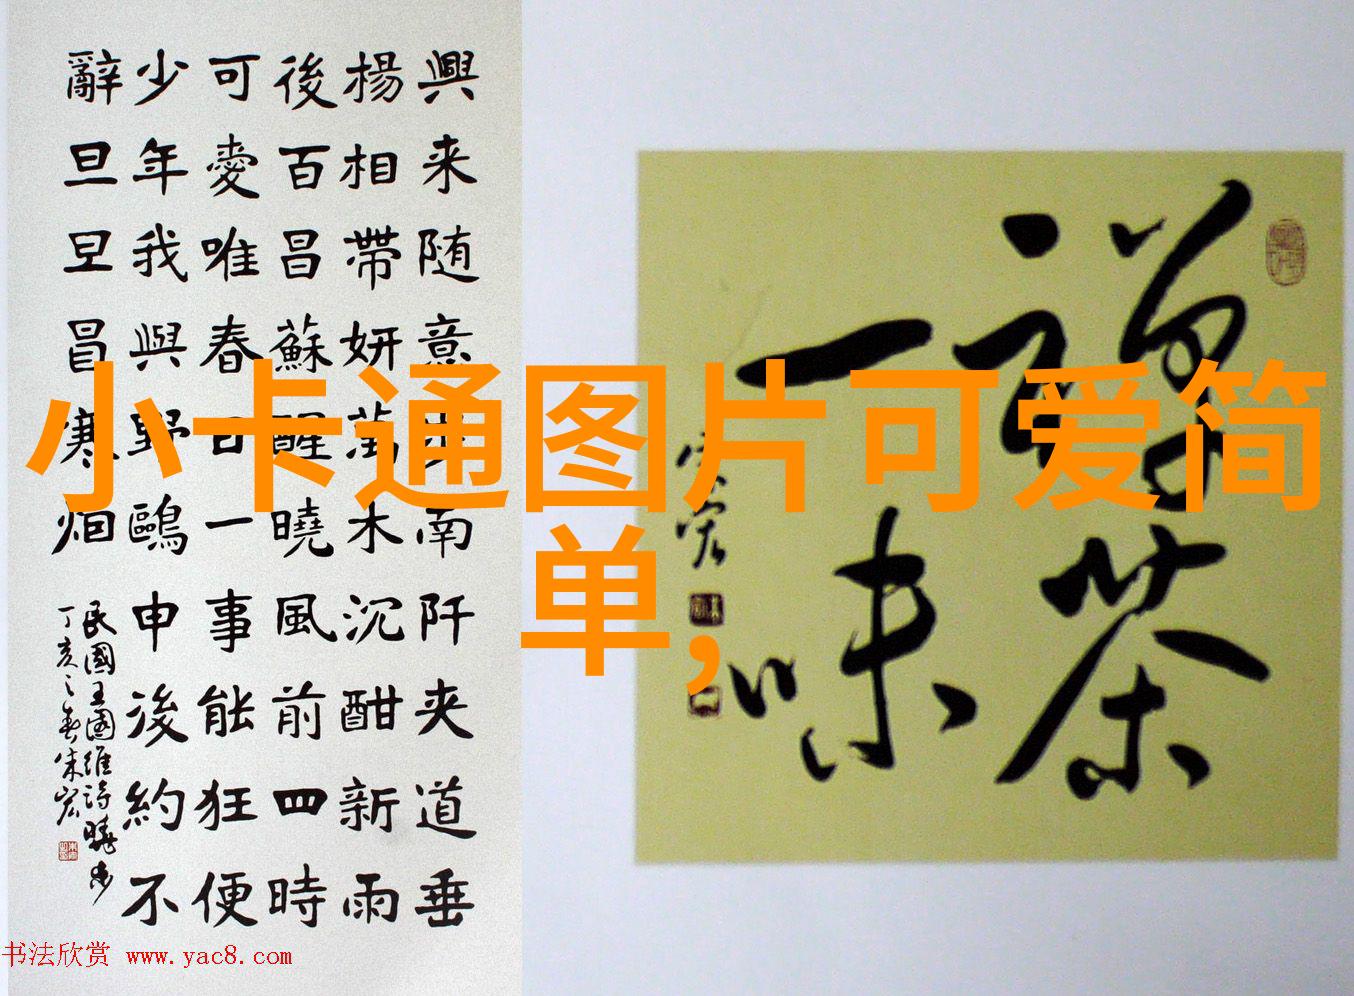 興来随意步南阡夹道垂
楊相帶妍萬木沉酣新雨
後百昌蘇醒曉風前四時
可愛唯春日一事能狂便
少年我與野鷗申後約不
辭旦旦冒寒烟
民國王國維詩曉步
丁亥之春朱宏
禪茶
一味
小卡通图片可爱简
单,
书法欣赏 www.yac8.com